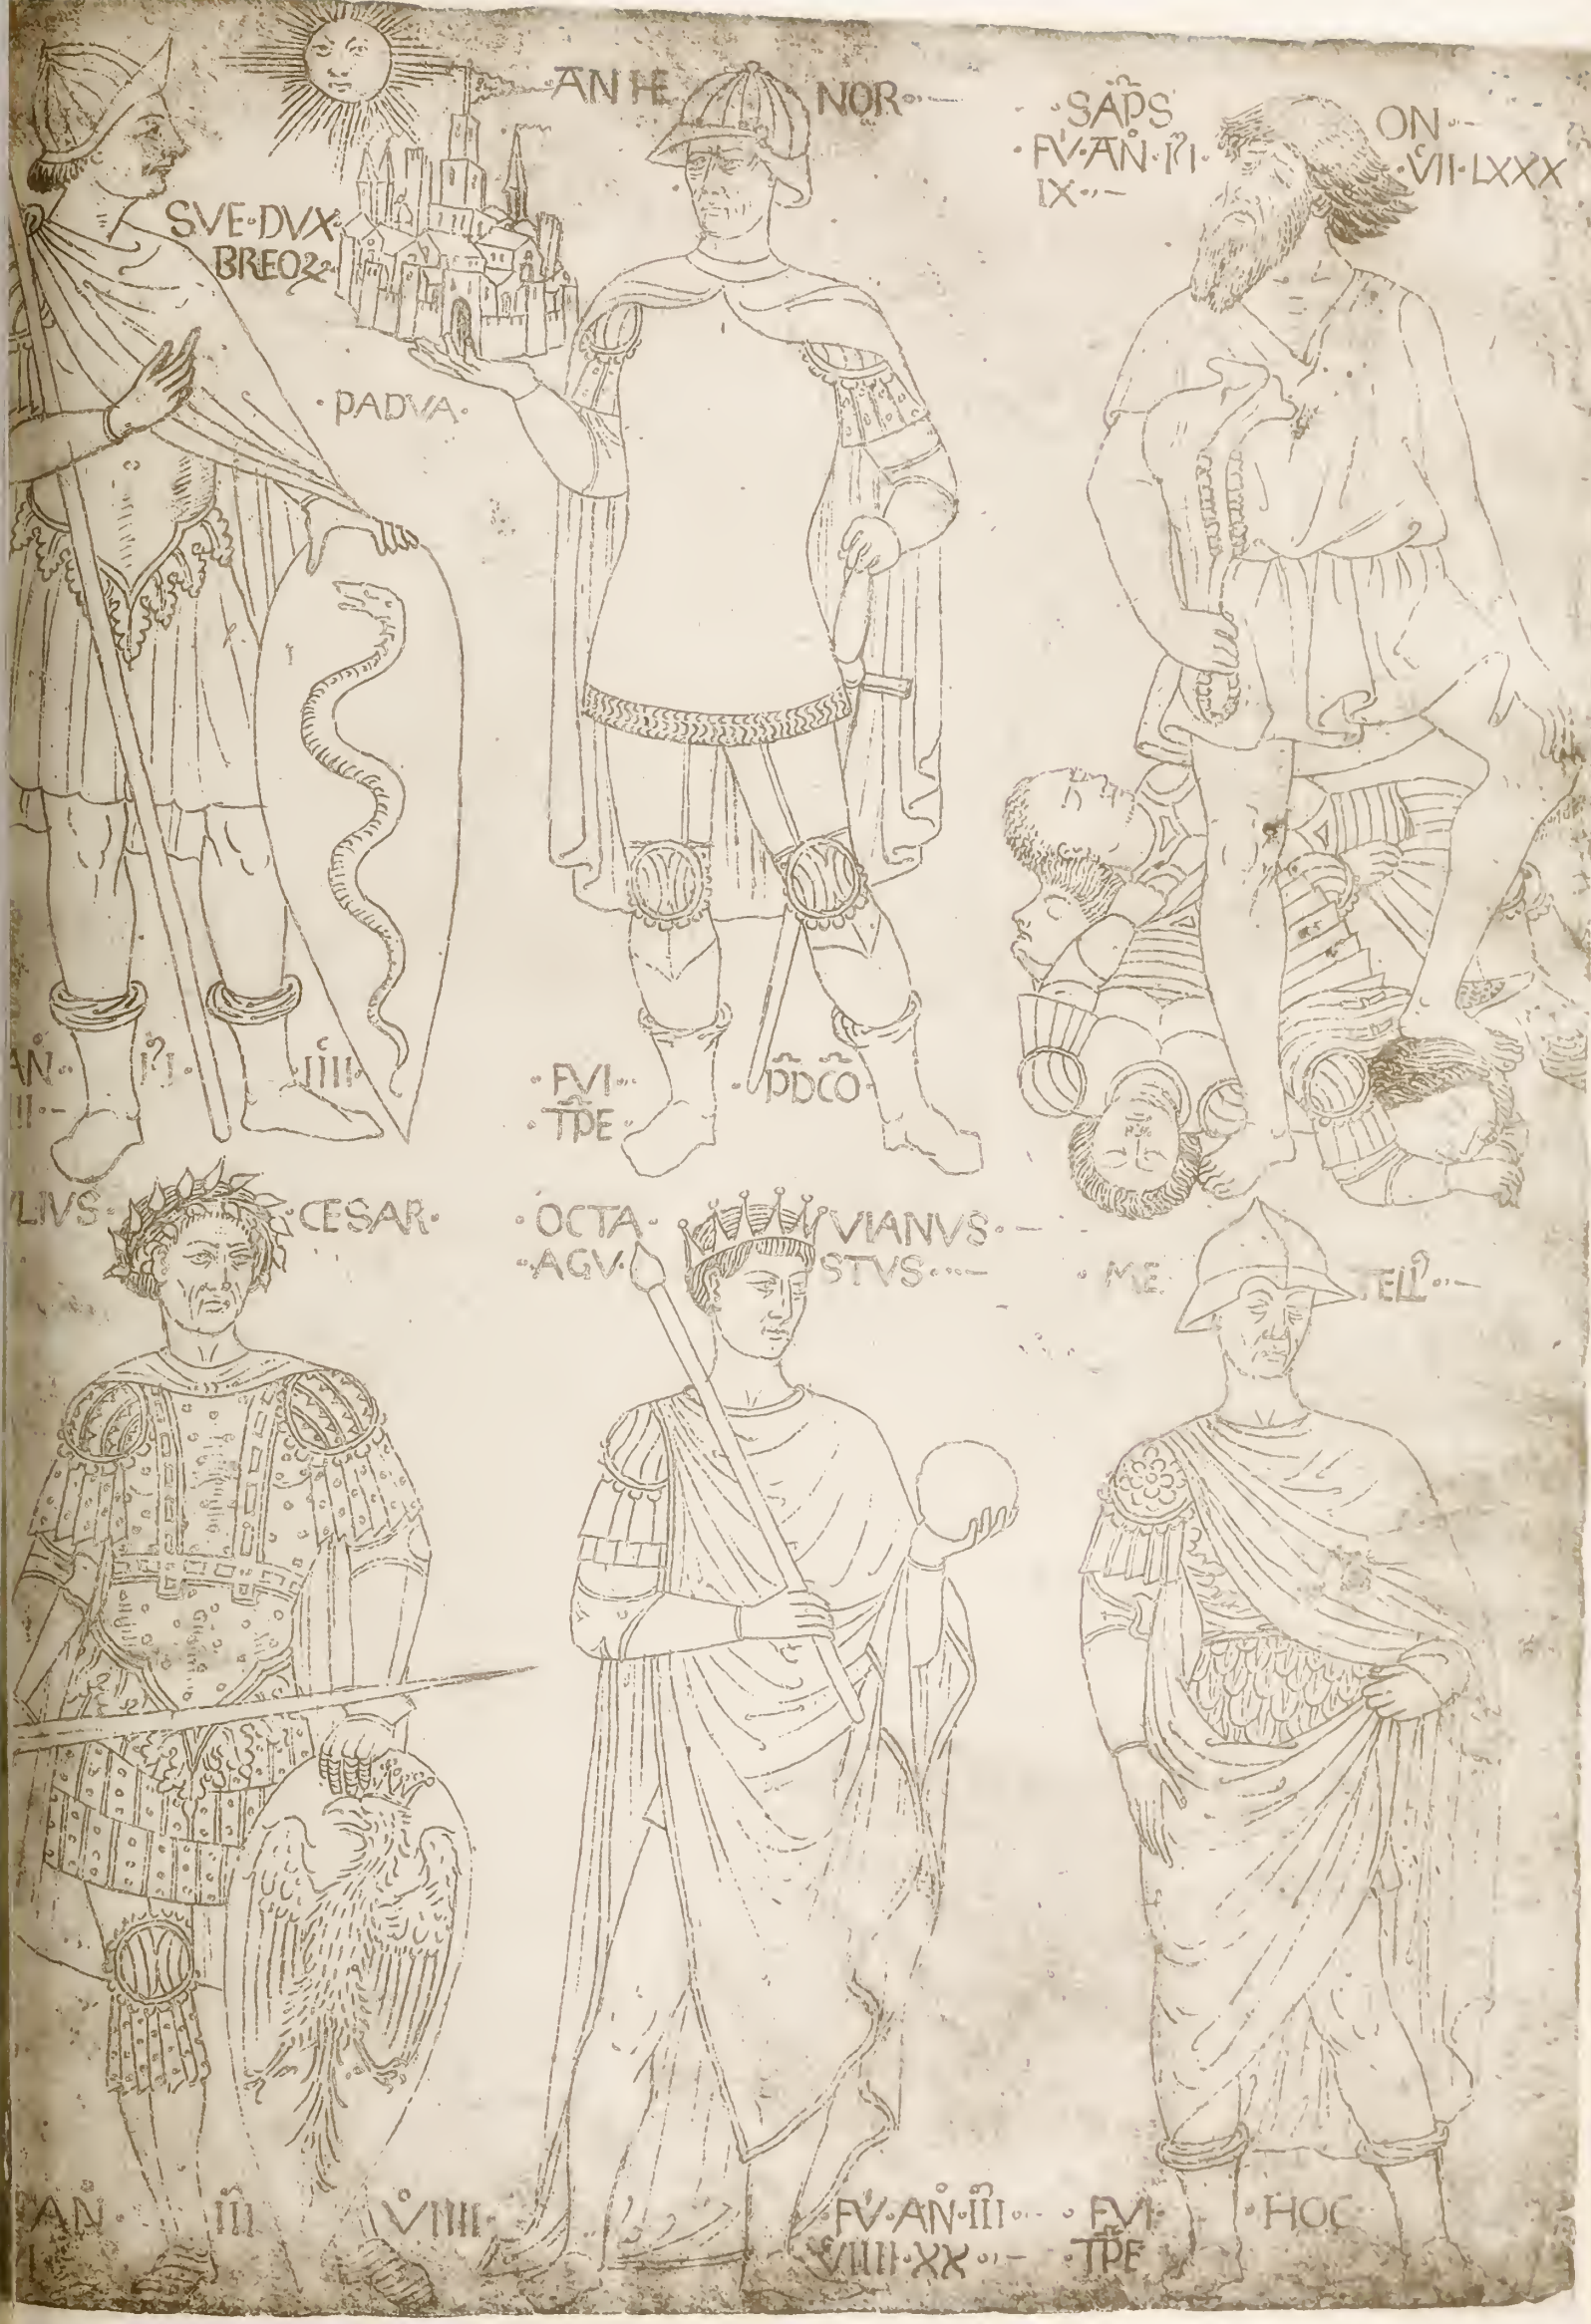 SVE·DVX
BREOꝜ
·PADVA·
AN HE NOR
SAPS ON
·FV·AN·M· ·VII·LXXX
IX
AN· M· IIII
III
·FVI· PDCO·
·TPE·
LIVS· ·CESAR·
·OCTA· VIANVS·
·AGV· STVS
·ME TELL
AN· III VIIII·
·FV·AN·III· ·FVI· ·HOC·
VIIII·XX ·TPE·